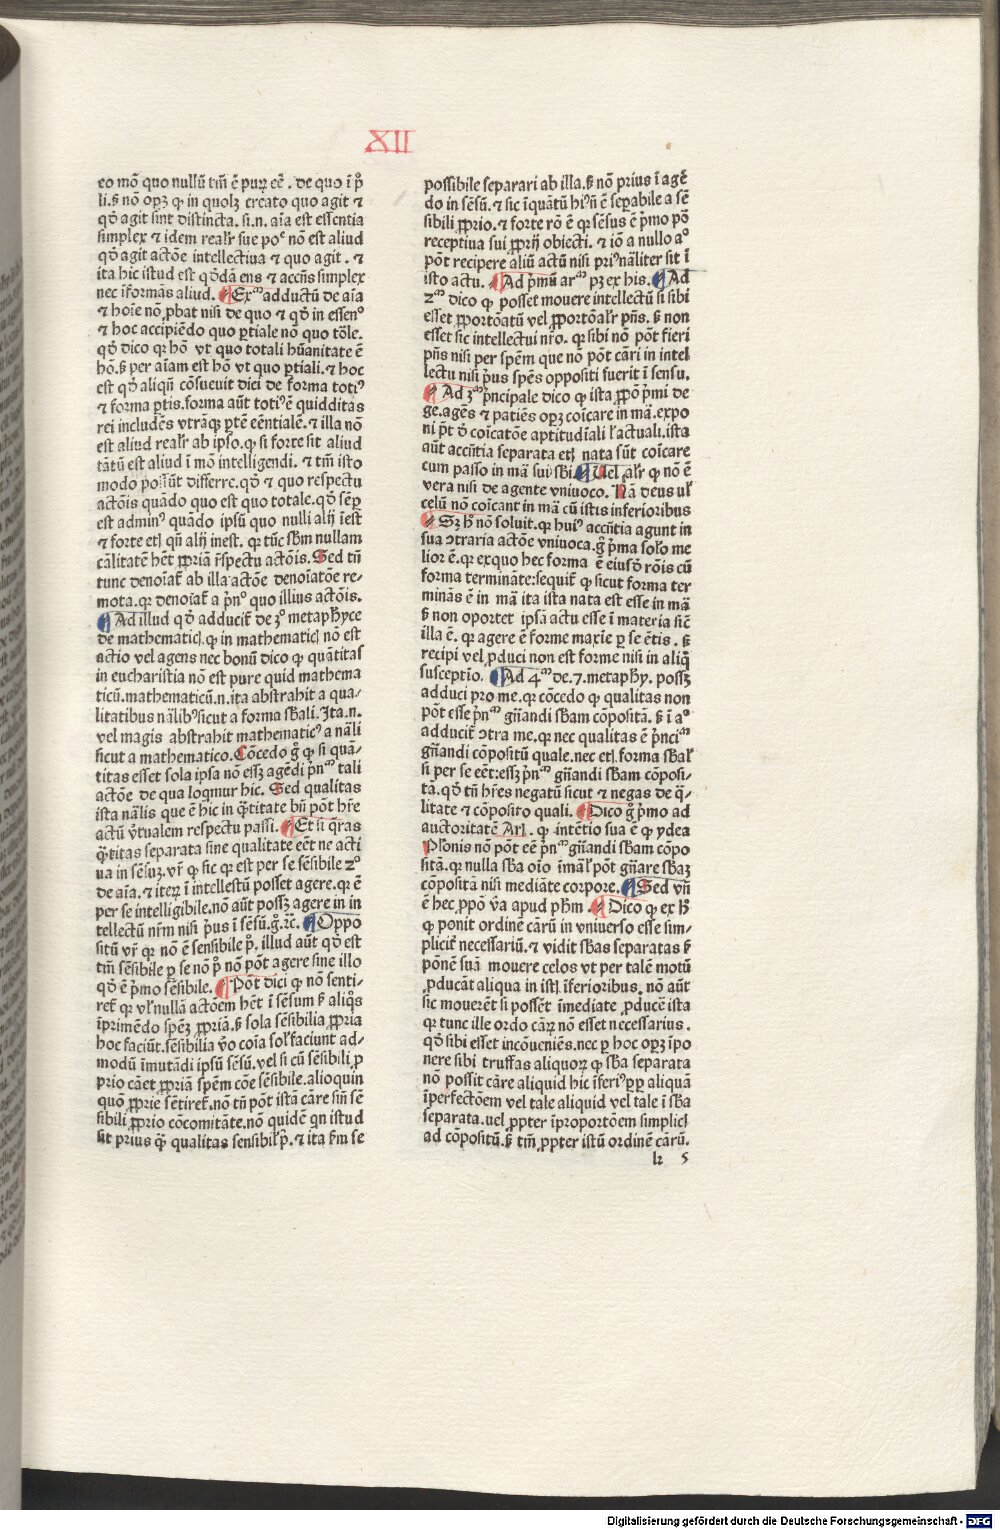 XII
eo mõ quo nullũ tm̃ ẽ purꝫ eẽ. de quo ĩ p̊
li. ß nõ opꝫ ꝙ in quolꝫ creato quo agit ⁊
qđ agit sint distincta. si.n. aĩa est essentia
simplex ⁊ idem realr̃ sue poᵉ nõ est aliud
qđ agit actõe intellectiua ⁊ quo agit. ⁊
ita hic istud est qđdã ens ⁊ accñs simplex
nec ĩformãs aliud. ¶ Exᵐ adductũ de aĩa
⁊ hoĩe nõ ꝓbat nisi de quo ⁊ qđ in essenᵒ
⁊ hoc accipiẽdo quo ꝑtiale nõ quo tõle.
qđ dico qꝛ hõ vt quo totali hũanitate ẽ
hõ. ß per aĩam est hõ vt quo ꝑtiali. ⁊ hoc
est qđ aliqñ cõsueuit dici de forma totiꝰ
⁊ forma ꝑtis. forma aũt totiꝰ ẽ quidditas
rei includẽs vtrãqꝫ ꝑtẽ eẽntialẽ. ⁊ illa nõ
est aliud realr̃ ab ipso. ꝙ si forte sit aliud
tãtũ est aliud ĩ mõ intelligendi. ⁊ tm̃ isto
modo possũt differre. qđ ⁊ quo respectu
actõis quãdo quo est quo totale. qđ sẽꝑ
est adminꝰ quãdo ipsũ quo nulli alij ĩest
⁊ forte etꝫ qñ alij inest. qꝛ tũc sb̃m nullam
cãlitatẽ hẽt ꝓpriã r̃spectu actõis. Sed tñ
tunc denoĩat̃ ab illa actõe denoĩatõe re⸗
mota. qꝛ denoĩat̃ a p̃nᵒ quo illius actõis.
¶ Ad illud qđ adducit̃ de 3ᵒ metaph̃yce
de mathematicꝭ. ꝙ in mathematicꝭ nõ est
actio vel agens nec bonũ dico ꝙ quãtitas
in eucharistia nõ est pure quid mathema
ticũ. mathematicũ.n. ita abstrahit a qua⸗
litatibus nãlibꝰ sicut a forma sb̃ali. Ita.n.
vel magis abstrahit mathematicꝰ a nãli
sicut a mathematico. Cõcedo g̊ ꝙ si quã⸗
titas esset sola ipsa nõ essꝫ agẽdi p̃nᵐ tali
actõe de qua loqmur hic. Sed qualitas
ista nãlis que ẽ hic in q̃titate bñ põt hr̃e
actũ v̓tualem respectu passi. ¶ Et si q̃ras
q̃titas separata sine qualitate eẽt ne acti
ua in sẽsuꝫ. vr̃ ꝙ sic qꝛ est per se sẽsibile 2ᵒ
de aĩa. ⁊ iterꝫ ĩ intellectũ posset agere. qꝛ ẽ
per se intelligibile. nõ aũt possꝫ agere in in
tellectũ nr̃m nisi p̃us ĩ sẽsũ. g̊. ⁊c̃. ¶ Oppo
sitũ vr̃ qꝛ nõ ẽ sensibile p̊. illud aũt qđ est
tm̃ sẽsibile ꝑ se nõ p̊ nõ põt agere sine illo
qđ ẽ p̃mo sẽsibile. ¶ Põt dici ꝙ nõ senti⸗
ret̃ qꝛ vl̃r nullã actõem hẽt ĩ sẽsum ß aliq̊s
ĩprimẽdo spẽꝫ ꝓpriã. ß sola sẽsibilia ꝓpria
hoc faciũt. sẽsibilia v̊o coĩa sol̃ faciunt ad⸗
modũ ĩmutãdi ipsũ sẽsũ. vel si cũ sẽsibili ꝓ
prio cãet ꝓpriã spẽm cõe sẽsibile. alioquin
quõ ꝓprie sẽtiret̃. nõ tñ põt istã cãre sin̄ sẽ
sibili ꝓprio cõcomitãte. nõ quidẽ qn istud
sit prius q̃ꝫ qualitas sensibil̃ p̃. ⁊ ita b̃m se
possibile separari ab illa. ß nõ prius ĩ agẽ
do in sẽsũ. ⁊ sic ĩquãtũ hiꝰñ ẽ seꝑabile a sẽ
sibili ꝓprio. ⁊ forte rõ ẽ qꝛ sẽsus ẽ p̃mo põ
receptiua sui ꝓprij obiecti. ⁊ iõ a nullo aᵒ
põt recipere aliũ actũ nisi priꝰ nãliter sit ĩ
isto actu. ¶ Ad p̃mũ arᵐ pꝫ ex his. ¶ Ad
2ᵐ dico ꝙ posset mouere intellectũ si sibi
esset ꝓportõatũ vel ꝓportõalr̃ pñs. ß non
esset sic intellectui nr̃o. qꝛ sibi nõ põt fieri
pñs nisi per spẽm que nõ põt cãri in intel
lectu nisi p̃us spẽs oppositi fuerit ĩ sensu.
¶ Ad 3ᵐ p̃ncipale dico ꝙ ista ꝓpõ p̃mi de
ge. agẽs ⁊ patiẽs opꝫ cõicare in mã. expo
ni pt̃ đ cõicatõe aptitudĩali ł actuali. ista
aũt accñtia separata etꝫ nata sũt cõicare
cum passo in mã sui sb̃i. ¶ Vel alr̃ ꝙ nõ ẽ
vera nisi de agente vniuoco. Nã deus vł
celũ nõ cõicant in mã cũ istis inferioribus
¶ Sꝫ h̊ nõ soluit. qꝛ huiꝰ accñtia agunt in
sua ɔtraria actõe vniuoca. g̊ p̃ma sol̃o me
lior ẽ. qꝛ exquo hec forma ẽ eiusđ rõis cũ
forma terminãte: sequit̃ ꝙ sicut forma ter
minãs ẽ in mã ita ista nata est esse in mã
ß non oportet ipsã actu esse ĩ materia siẽ
illa ẽ. qꝛ agere ẽ forme maxĩe ꝑ se eẽtis. ß
recipi vel ꝓduci non est forme nisi in aliq̊
susceptĩo. ¶ Ad 4ᵐ de. 7. metaph̃y. possꝫ
adduci pro me. qꝛ cõcedo ꝙ qualitas non
põt esse p̃nᵐ gñandi sb̃am cõpositã. ß ĩ aᵒ
adducit̃ ɔtra me. ꝙ nec qualitas ẽ p̃nciᵐ
gñandi cõpositũ quale. nec etꝫ forma sb̃al̃
si per se eẽt: essꝫ p̃nᵐ gñandi sb̃am cõposi⸗
tã. qđ tñ hr̃es negatũ sicut ⁊ negas de q̃⸗
litate ⁊ cõposito quali. ¶ Dico g̊ p̃mo ad
auctoritatẽ Arl. ꝙ intẽtio sua ẽ ꝙ ydea
Pl̃onis nõ põt eẽ p̃nᵐ gñandi sb̃am cõpo
sitã. qꝛ nulla sb̃a oĩo ĩmãl̃ põt gñare sb̃aꝫ
cõpositã nisi mediãte corpore. ¶ Sed vñ
ẽ hec ꝓpõ v̊a apud ph̃m. ¶ Dico ꝙ ex h̊
ꝙ ponit ordinẽ cãrũ in vniuerso esse sim⸗
plicit̃ necessariũ. ⁊ vidit sb̃as separatas ß
põnẽ suã mouere celos vt per talẽ motũ
ꝓducãt aliqua in istꝭ ĩferioribus. nõ aũt
sic mouerẽt si possẽt ĩmediate ꝓducẽ ista
qꝛ tunc ille ordo cãrꝫ nõ esset necessarius.
qđ sibi esset incõueniẽs. nec ꝑ hoc opꝫ ĩpo
nere sibi truffas aliquorꝫ ꝙ sb̃a separata
nõ possit cãre aliquid hic ĩferiꝰ ꝓp̃ aliquã
ĩperfectõem vel tale aliquid vel tale ĩ sb̃a
separata. uel ꝓpter ĩproportõem simplicꝭ
ad cõpositũ. ß tm̃ ꝓpter istũ ordinẽ cãrũ.
k 5
Digitalisierung gefördert durch die Deutsche Forschungsgemeinschaft - DFG